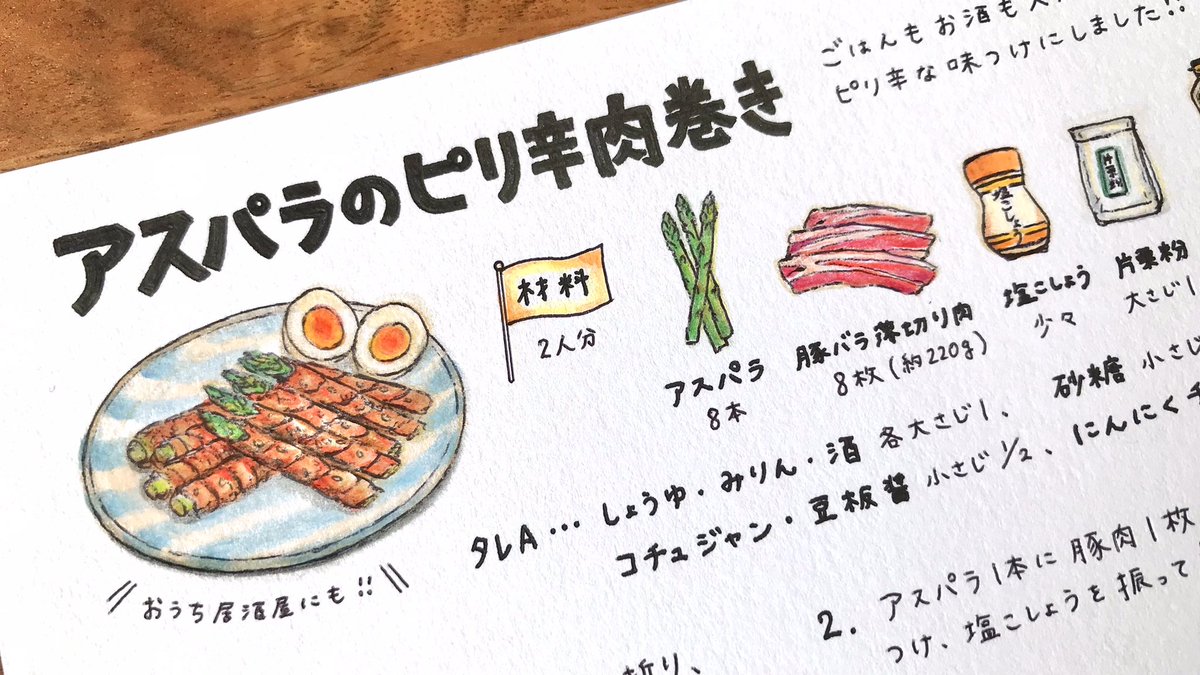 アスパラのピリ辛肉巻き
ごはんもお酒も
ピリ辛な味つけにしました!!
材料
2人分
アスパラ
8本
豚バラ薄切り肉
8枚(約220g)
塩こしょう
塩こしょう
少々
片栗粉
片栗粉
大さじ1
タレA… しょうゆ・みりん・酒 各大さじ1、 砂糖 小さじ
コチュジャン・豆板醤 小さじ1/2、にんにくチ
おうち居酒屋にも!!
折り、
2. アスパラ1本に豚肉1枚
つけ、塩こしょうを振って